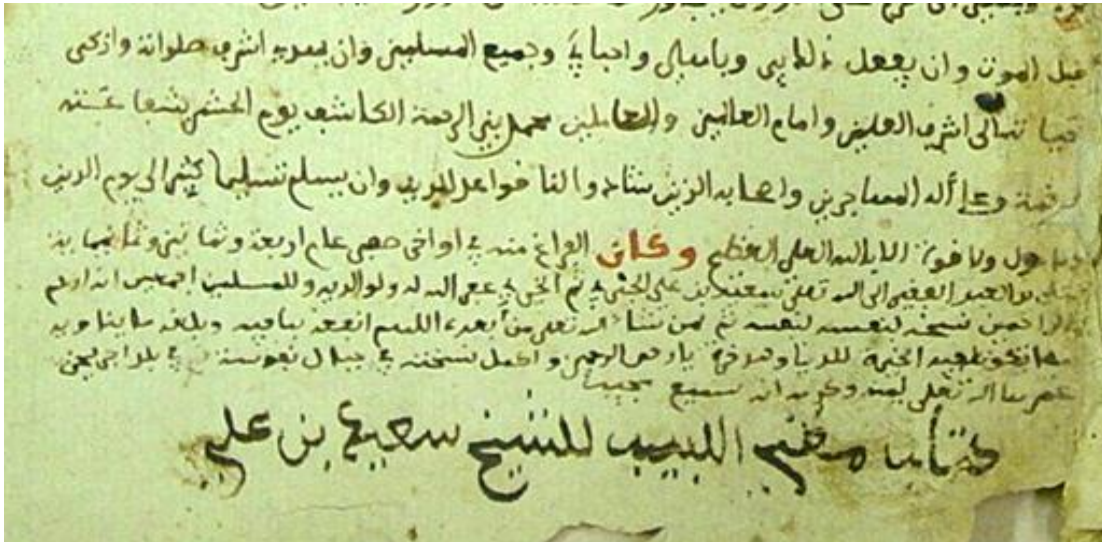 قبل الموت وان يفعل ذالك بي وباهلي واحبابي وجميع المسلمين وان يهدي اشرف صلواته وازكى
تحياته الى اشرف العالمين وامام العالمين والعاملين محمد نبي الرحمة الكاشف يوم الحشر بشفاعته
وعلى أله المهاجرين واصحابه الذين شادوا لنا قواعد الدين وان يسلم تسليما كثيرا الى يوم الدين
ولا حول ولا قوة الا بالله العلي العظيم وكان الفراغ منه في اواخر عام اربعة وثمانين وثمانمائة
العبد الفقير الى الله تعلى بن علي ثم غفر الله له ولوالديه وللمسلمين اجمعين انه ارحم
الراحمين نسخه لنفسه ثم لمن شاء الله تعلى من بعده اللهم انفعه بما فيه وبلغه
للدنيا والاخرة يا رحمن الرحيم واكمل نسخته في جبال نفوسة في
الله تعلى بمنه وكرمه انه سميع مجيب
كتاب مغني اللبيب للشيخ سعيد بن علي